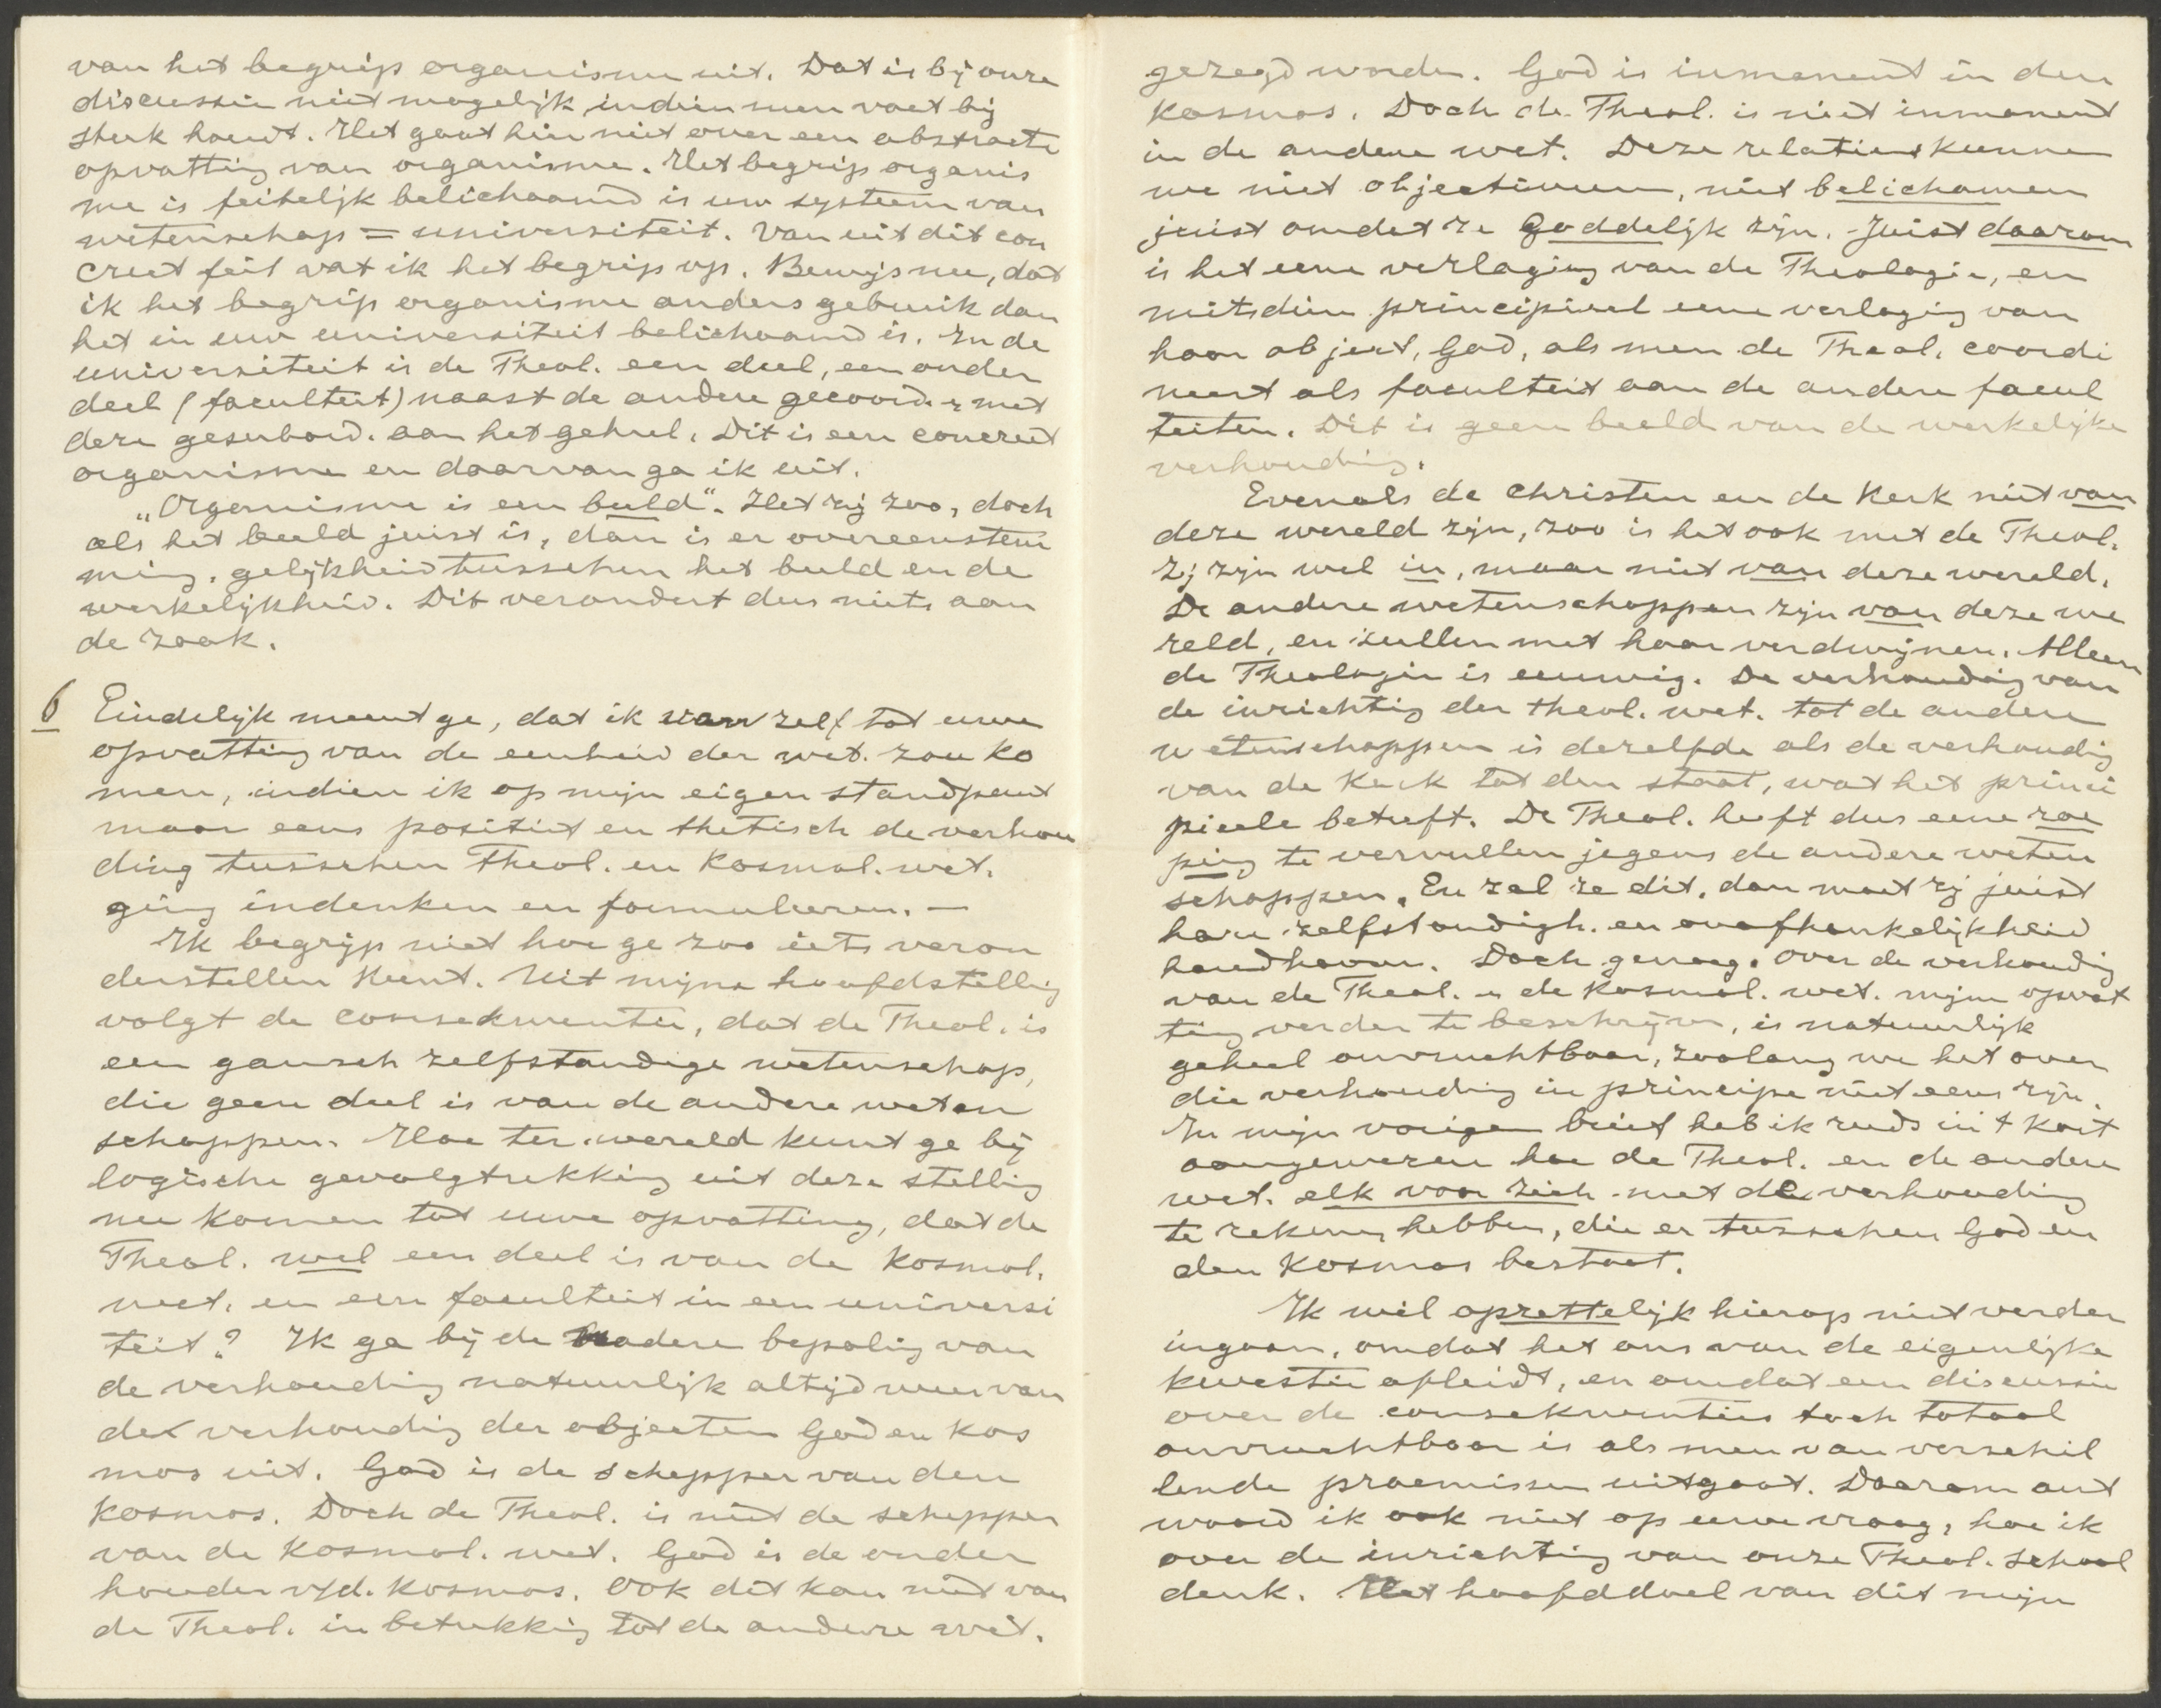 van het begrip organisme uit. Dat is bij onze
discussie niet mogelijk indien men voet bij
stuk houdt. Het gaat hier niet over een abstracte
opvatting van organisme. Het begrip organis
me is feitelijk belichaamd is uw systeem van
wetenschap = universiteit. Van uit dit con
creet feit vat ik het begrip op. Bewijs nu, dat
ik het begrip organisme anders gebruik dan
het in uw universiteit belichaamd is. In de
universiteit is de Theol. een deel, een onder
deel (faculteit) naast de andere gecoord. & met
deze gesubord. aan het geheel. Dit is een concreet
organisme en daarvan ga ik uit.
„Organisme is een beeld". Het zij zoo, doch
als het beeld juist is, dan is er overeenstem
ming, gelijkheid tusschen het beeld en de
werkelijkheid. Dit verandert dus niets aan
de zaak.
6 Eindelijk meent ge, dat ik van zelf tot uwe
opvatting van de eenheid der wet. zou ko
men, indien ik op mijn eigen standpunt
maar eens positief en thetisch de verhou
ding tusschen Theol. en Kosmol. wet.
ging indenken en formuleeren. —
Ik begrijp niet hoe ge zoo iets veron
derstellen kunt. Uit mijne hoofdstelling
volgt de consekwentie, dat de Theol. is
een gansch zelfstandige wetenschap,
die geen deel is van de andere weten
schappen. Hoe ter wereld kunt ge bij
logische gevolgtrekking uit deze stelling
nu komen tot uwe opvatting, dat de
Theol. wel een deel is van de Kosmol.
wet. en een faculteit in een universi
teit? Ik ga bij de nadere bepaling van
de verhouding natuurlijk altijd weer van
de verhouding der objecten God en Kos
mos uit. God is de schepper van den
Kosmos. Doch de Theol. is niet de schepper
van de Kosmol. wet. God is de onder
houder v/d. Kosmos. Ook dit kan niet van
de Theol. in betrekking tot de andere wet.
gezegd worden. God is inmanent in den
Kosmos. Doch de Theol. is niet inmanent
in de andere wet. Deze relaties kunnen
we niet objectiveren, niet belichamen
juist omdat ze Goddelijk zijn. Juist daarom
is het eene verlaging van de Theologie, en
mitsdien principieel eene verlaging van
haar object, God, als men de Theol. coordi
neert als faculteit aan de andere facul
teiten. Dit is geen beeld van de werkelijke
verhouding.
Evenals de Christen en de Kerk niet van
deze wereld zijn, zoo is het ook met de Theol.
Zij zijn wel in, maar niet van deze wereld.
De andere wetenschappen zijn van deze we
reld, en zullen met haar verdwijnen. Alleen
de Theologie is eeuwig. De verhouding van
de inrichting der theol. wet. tot de andere
wetenschappen is dezelfde als de verhouding
van de Kerk tot den staat, wat het princi
pieele betreft. De Theol. heeft dus eene roe
ping te vervullen jegens de andere weten
schappen. En zal ze dit, dan moet zij juist
hare zelfstandigh. en onafhankelijkheid
handhaven. Doch genoeg. Over de verhouding
van de Theol. & de Kosmol. wet. mijn opvat
ting verder te beschrijven, is natuurlijk
geheel onvruchtbaar, zoolang we het over
die verhouding in principe niet eens zijn.
In mijn vorigen brief heb ik reeds in 't kort
aangewezen hoe de Theol. en de andere
wet. elk voor zich met de verhouding
te rekenen hebben, die er tusschen God en
den Kosmos bestaat.
Ik wil opzettelijk hierop niet verder
ingaan, omdat het ons van de eigenlijke
kwestie afleidt, en omdat een discussie
over de consekwenties toch totaal
onvruchtbaar is als men van verschil
lende praemissen uitgaat. Daarom ant
woord ik ook niet op uwe vraag, hoe ik
over de inrichting van onze Theol. School
denk. Het hoofddoel van dit mijn